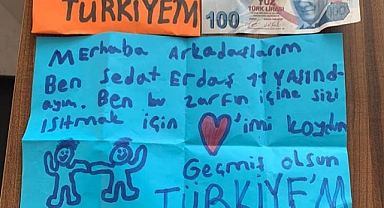 TÜRKİYEM
100
YÜZ
TÜRK LİRASI
Merhaba Arkadaşlarım
Ben Sedat Erdaş 11 YAŞınd-
ayım.. Ben bu zarfın içine sizi
ısıtmak için ♥'imi koydum
Geçmiş olsun
TÜRKİYE'M